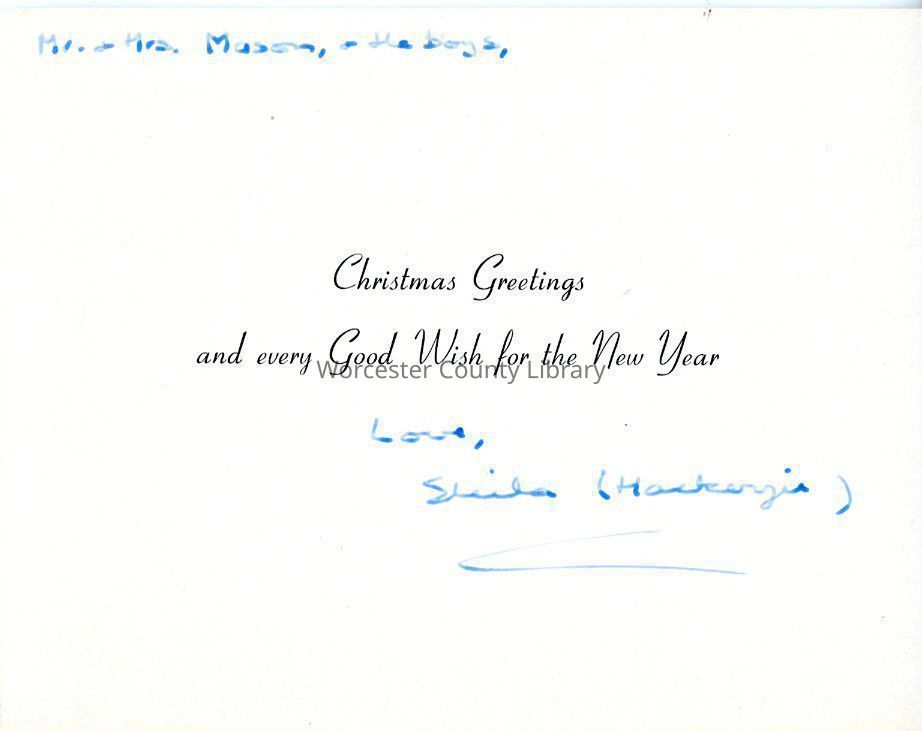 Mr. + Mrs. Mason, + the boys,
Christmas Greetings
and every Good Wish for the New Year
Worcester County Library
Love,
Sheila (Mackenzie)